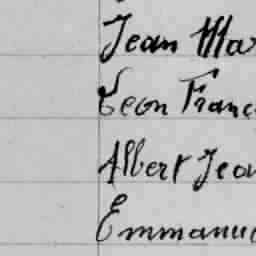 Jean Mar
Leon Franc
Albert Jean
Emmanue